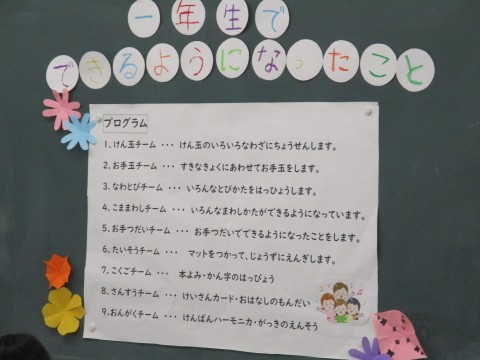 一年生で
できるようになったこと
プログラム
1.けん玉チーム ・・・ けん玉のいろいろなわざにちょうせんします。
2.お手玉チーム ・・・ すきなきょくにあわせてお手玉をします。
3.なわとびチーム ・・・ いろんなとびかたをはっぴょうします。
4.こままわしチーム ・・・ いろんなまわしかたができるようになっています。
5.お手つだいチーム ・・・ お手つだいでできるようになったことをします。
6.たいそうチーム ・・・ マットをつかって、じょうずにえんぎします。
7.こくごチーム ・・・ 本よみ・かん字のはっぴょう
8.さんすうチーム ・・・ けいさんカード・おはなしのもんだい
9.おんがくチーム ・・・ けんばんハーモニカ・がっきのえんそう